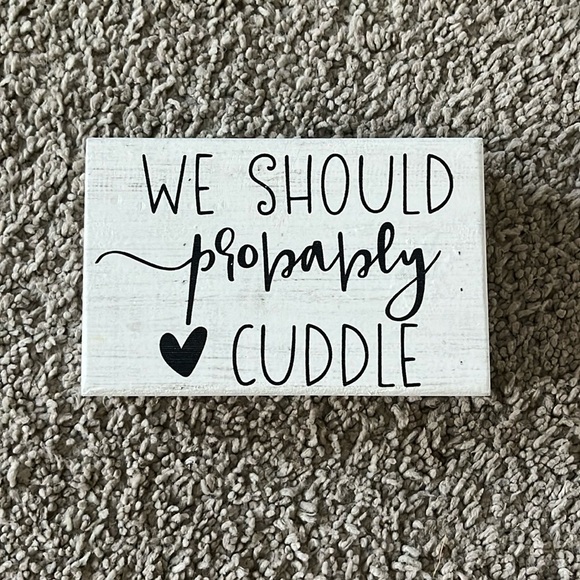 WE SHOULD
probably
CUDDLE